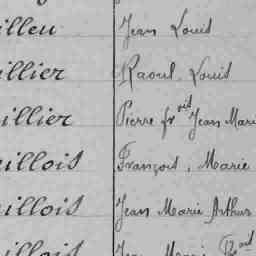 illeu Jean Louis
illier Raoul, Louis
illier Pierre fr ois Jean Marie
illois François, Marie
illois Jean Marie Arthur
illois Jean Marie